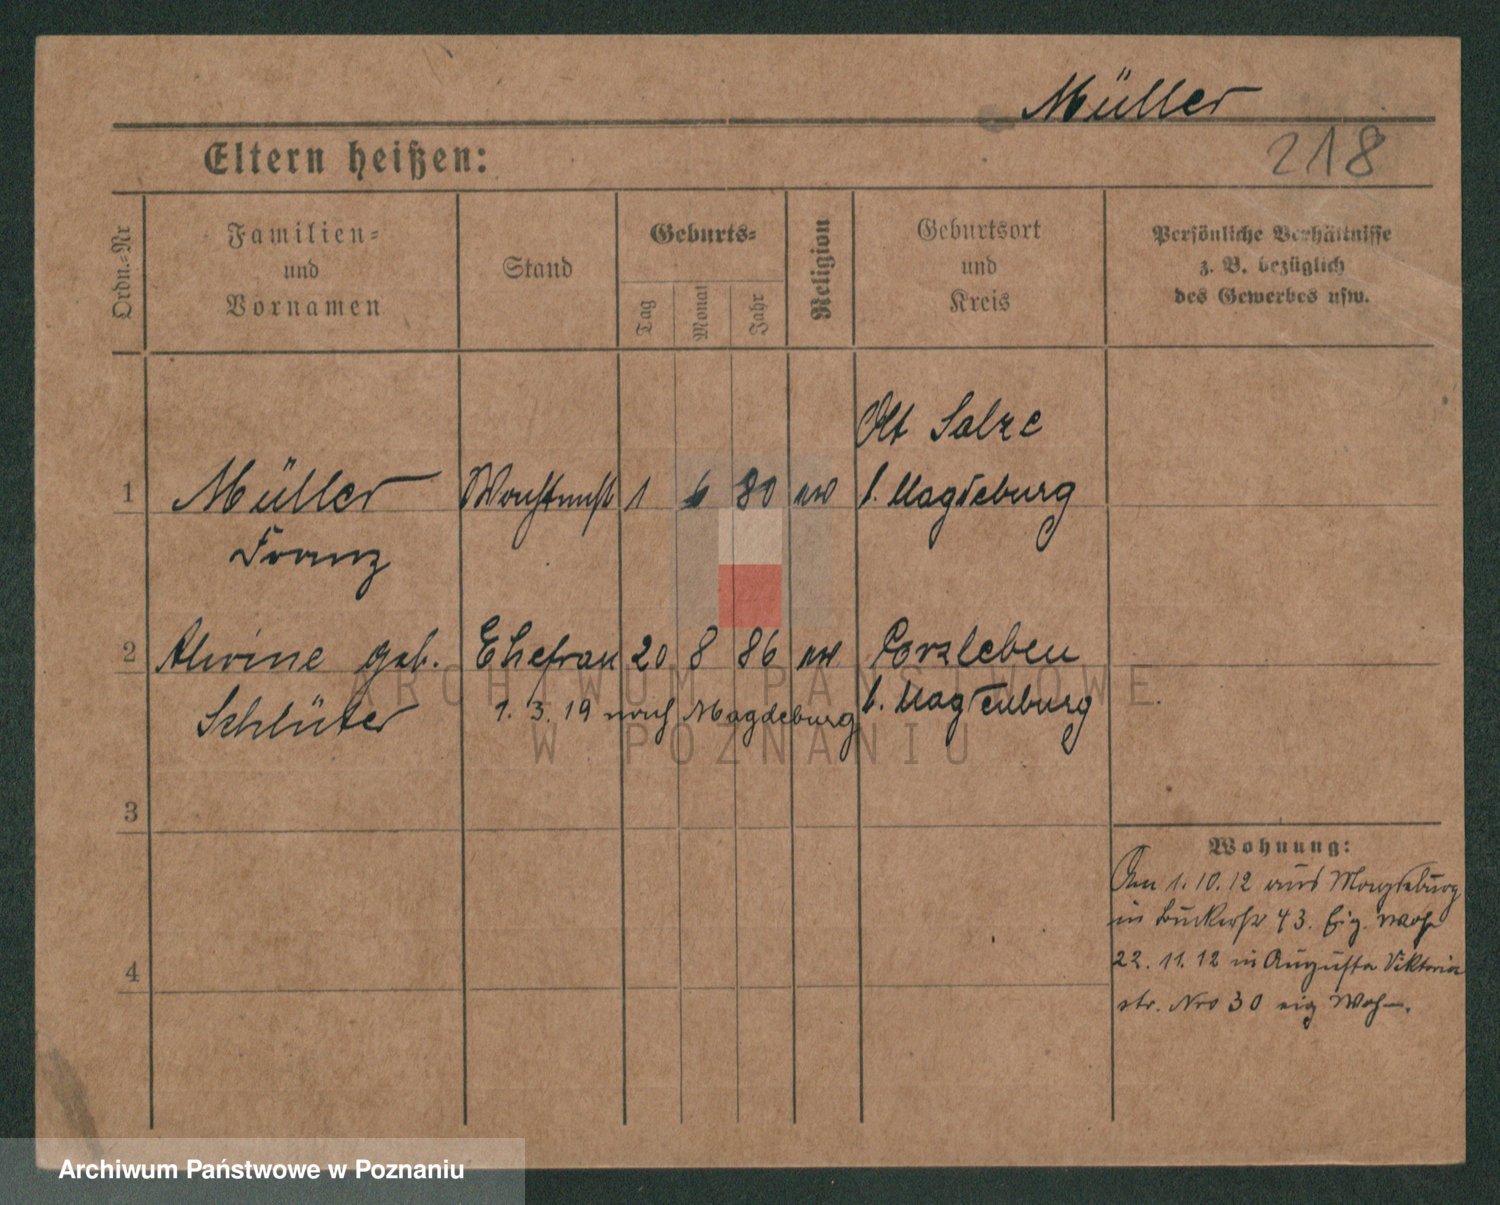 Müller
218
Eltern heißen:
Ordn.-Nr
Familien-
und
Vornamen
Stand
Geburts-
Tag
Monat
Jahr
Religion
Geburtsort
und
Kreis
Persönliche Verhältnisse
z. B. bezüglich
des Gewerbes usw.
Alt Salze
1 Müller 1 6 80 ew b. Magdeburg
Franz
2 Alwine geb. Ehefrau 20 8 86 ew
Schlüter 1. 3. 19 nach Magdeburg b. Magdeburg
3
4
Wohnung:
Am 1.10.12 aus Magdeburg
in 43. Eig. Woh
22. 11. 12 in Augusta Viktoria
str. Nro 30 eig Woh.
ARCHIWUM PAŃSTWOWE
W POZNANIU
Archiwum Państwowe w Poznaniu